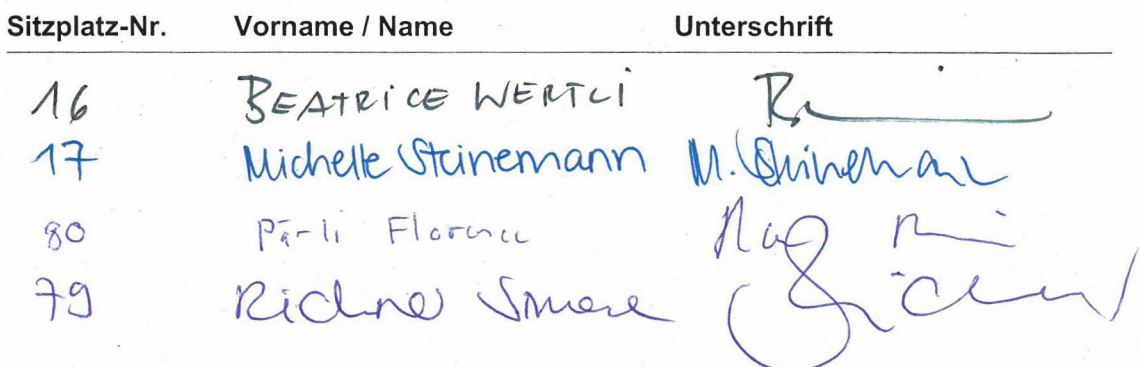 Sitzplatz-Nr. Vorname / Name Unterschrift
16 BEATRICE WERTLI
17 Michelle Steinemann M. Steinemann
80 Pärli Florence
79 Richner Simone